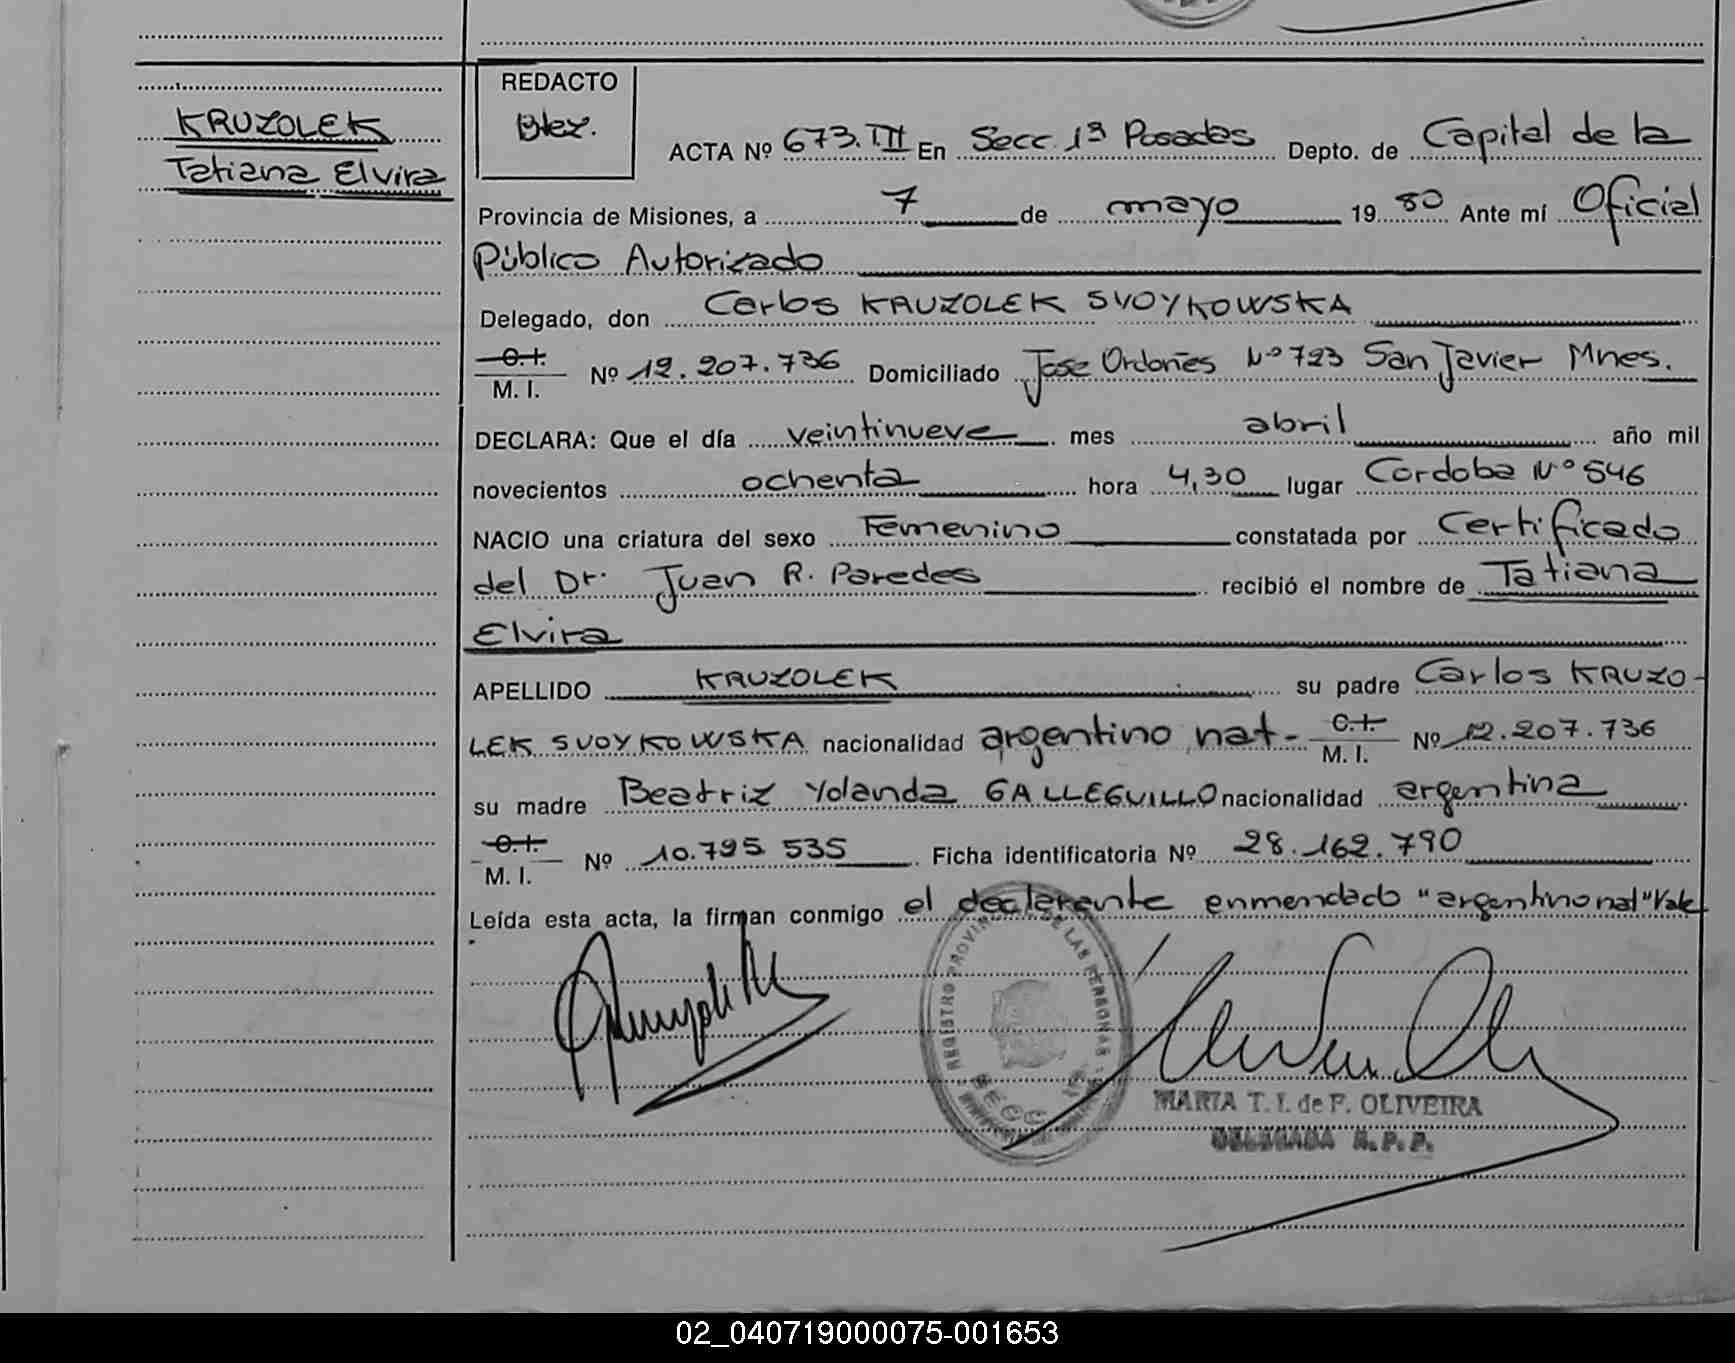 KRUZOLEK
Tatiana Elvira
REDACTO
Blez.
ACTA Nº 673.III En Secc. 1ª Posadas Depto. de Capital de la
Provincia de Misiones, a 7 de mayo 19 80 Ante mí Oficial
Público Autorizado
Delegado, don Carlos KRUZOLEK SVOYKOWSKA
C.I.
M. I. Nº 12.207.736 Domiciliado Jose Ordoñes Nº 723 San Javier Mnes.
DECLARA: Que el día veintinueve mes abril año mil
novecientos ochenta hora 4,30 lugar Cordoba Nº 546
NACIO una criatura del sexo Femenino constatada por Certificado
del Dr. Juan R. Paredes recibió el nombre de Tatiana
Elvira
APELLIDO KRUZOLEK su padre Carlos KRUZO-
LEK SVOYKOWSKA nacionalidad argentino nat- C.I. M. I. Nº 12.207.736
su madre Beatriz Yolanda GALLEGUILLO nacionalidad argentina
C.I.
M. I. Nº 10.795 535 Ficha identificatoria Nº 28.162.790
Leída esta acta, la firman conmigo el declarante enmendado "argentino nat" Vale
REGISTRO PROVINCIAL DE LAS PERSONAS
SECC. 1ª
MARIA T. I. de F. OLIVEIRA
DELEGADA R.P.P.
02_040719000075-001653